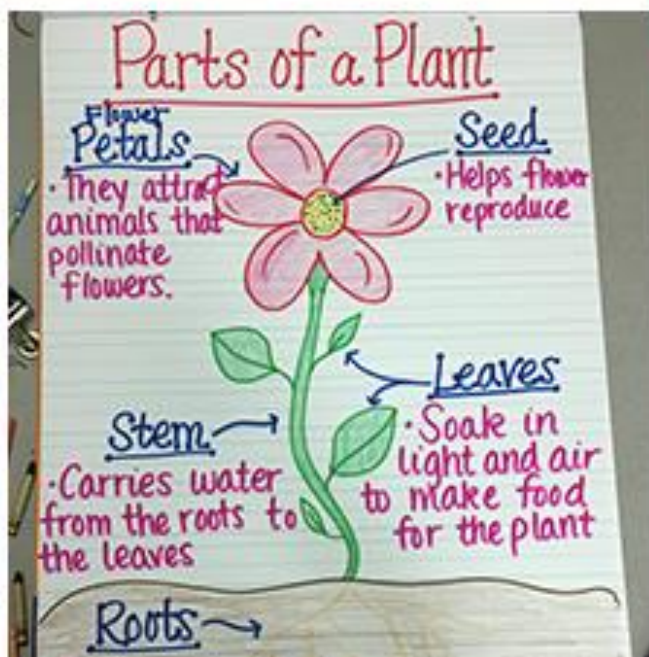 Parts of a Plant
Flower
Petals
· They attract
animals that
pollinate
flowers.
Seed
· Helps flower
reproduce
Leaves
· Soak in
light and air
to make food
for the plant
Stem
· Carries water
from the roots to
the leaves
Roots